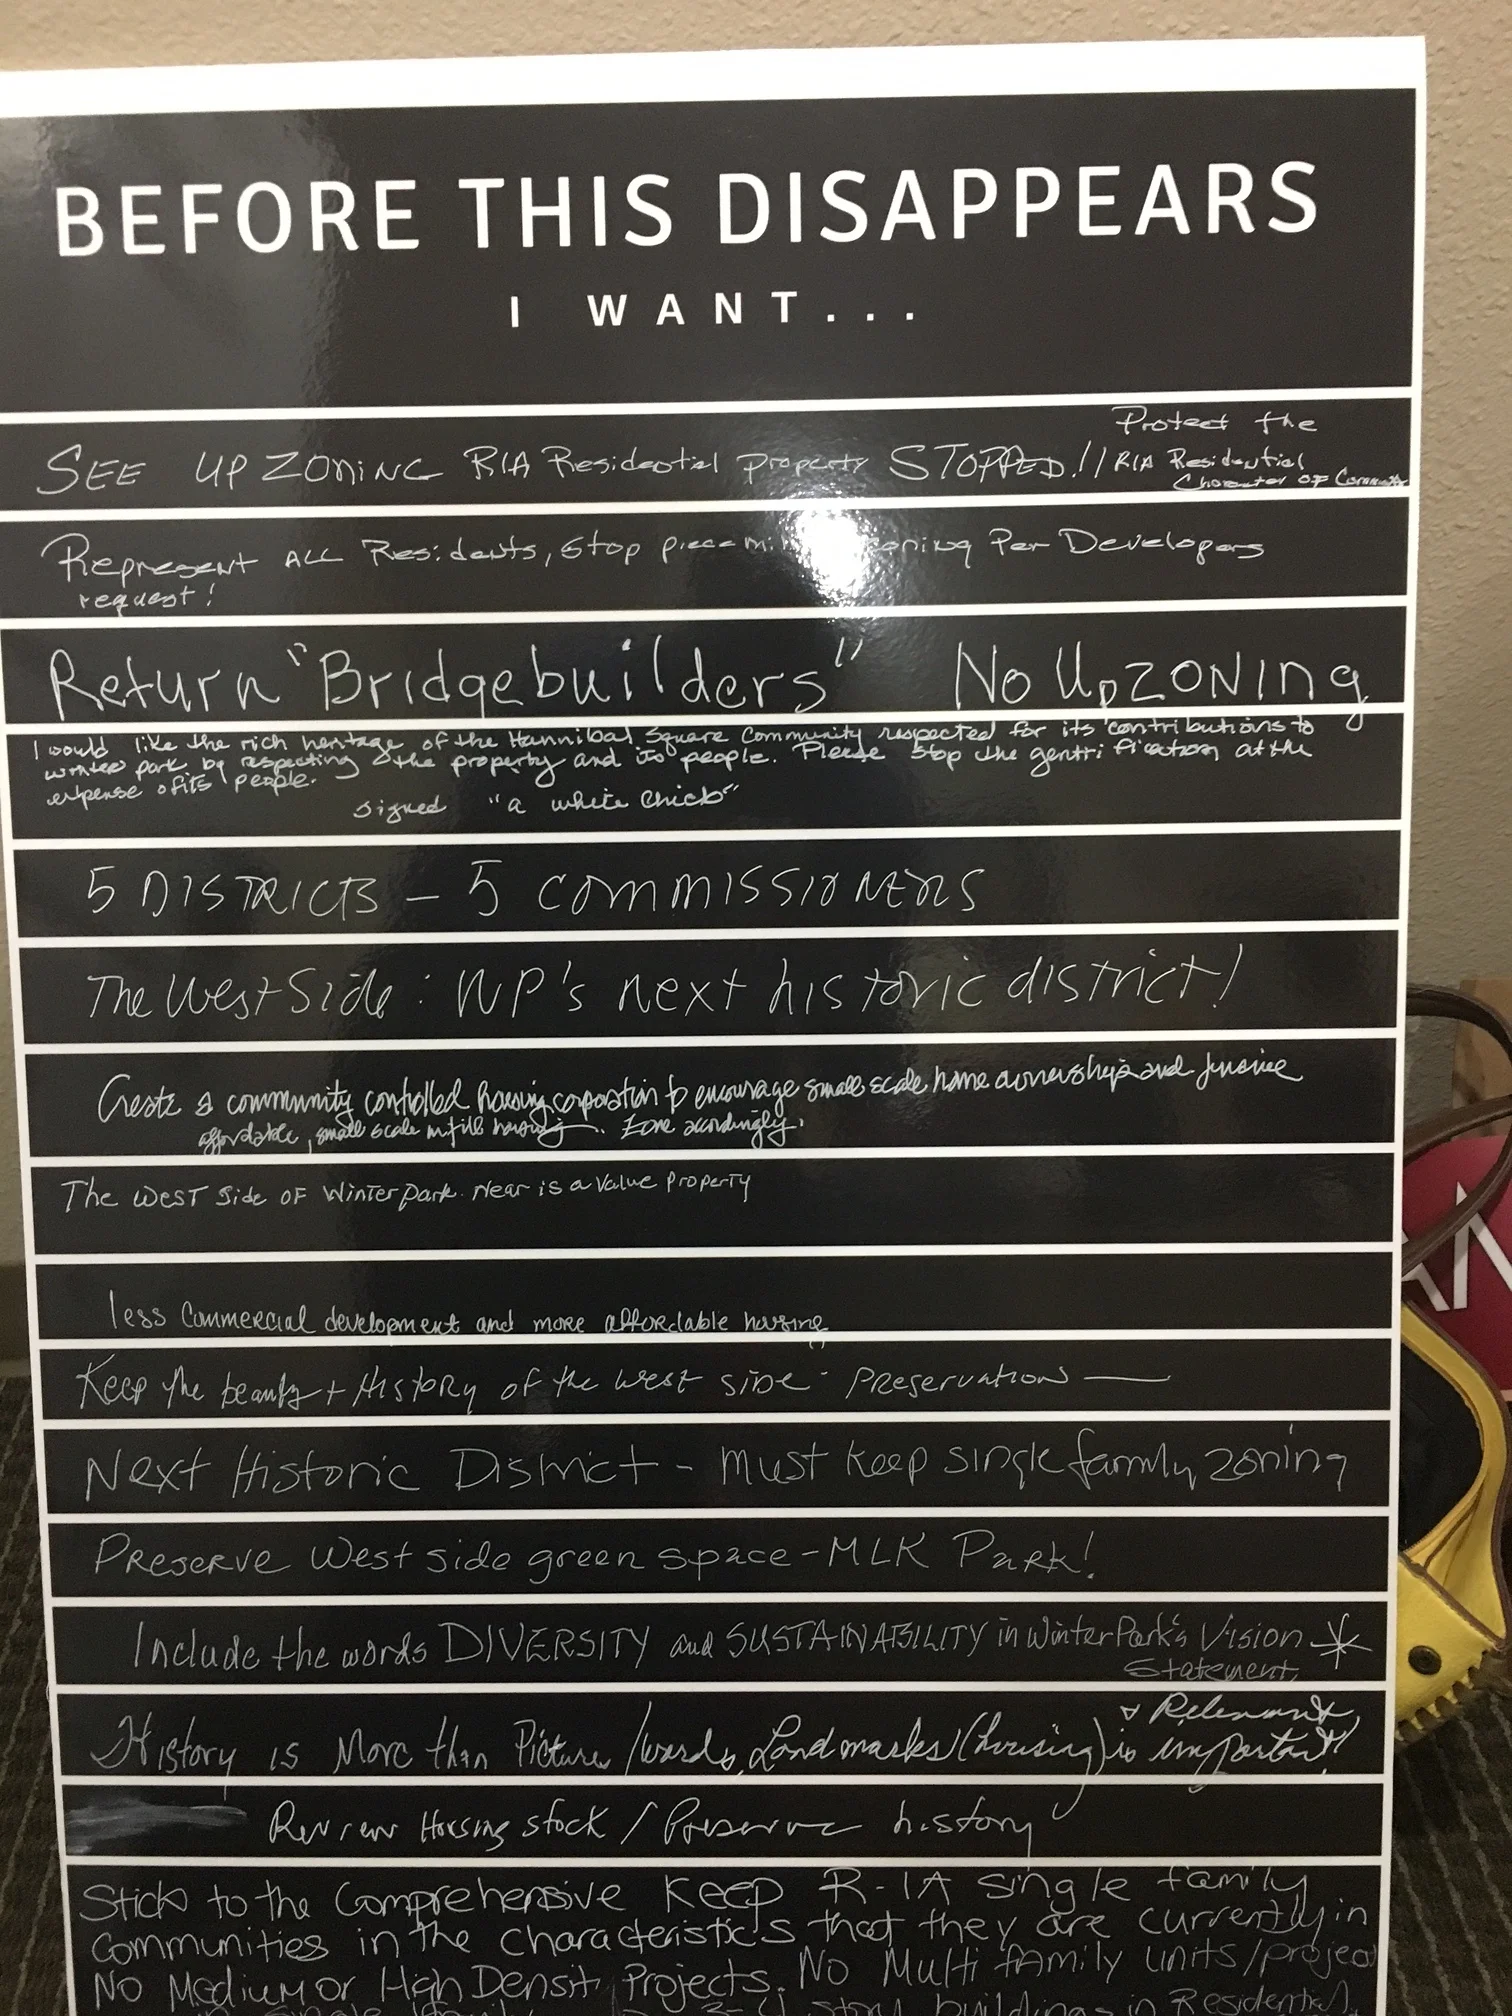 BEFORE THIS DISAPPEARS
I WANT...
SEE UPZONING R1A Residential property STOPPED!! Protect the
R1A Residential
Character of
Represent ALL Residents, Stop Per Developers
request!
Return "Bridgebuilders" No UpZONING
I would like the rich heritage of the Hannibal Square Community respected for its contributions to
winter park by respecting the property and its people. Please stop the gentrification at the
expense of its people.
signed "a white chick"
5 DISTRICTS - 5 COMMISSIONERS
The West Side: WP's next historic district!
Create a community controlled housing corporation to encourage small scale home ownership and
affordable, small scale infill housing. Zone accordingly.
The West Side OF Winter park. Near is a Value Property
less Commercial development and more affordable housing
Keep the beauty + History of the west side - Preservation —
Next Historic District - Must keep single family zoning
Preserve West side green space - MLK Park!
Include the words DIVERSITY and SUSTAINABILITY in Winter Park's Vision *
Statement.
History is More than Picture/words, Landmarks (housing) is + Relevant
important!
Review Housing stock / Preserve history
Stick to the Comprehensive Keep R-1A single family
Communities in the characteristics that they are currently in
No Medium or High Density Projects. No Multi family units/
single family story buildings in Residential